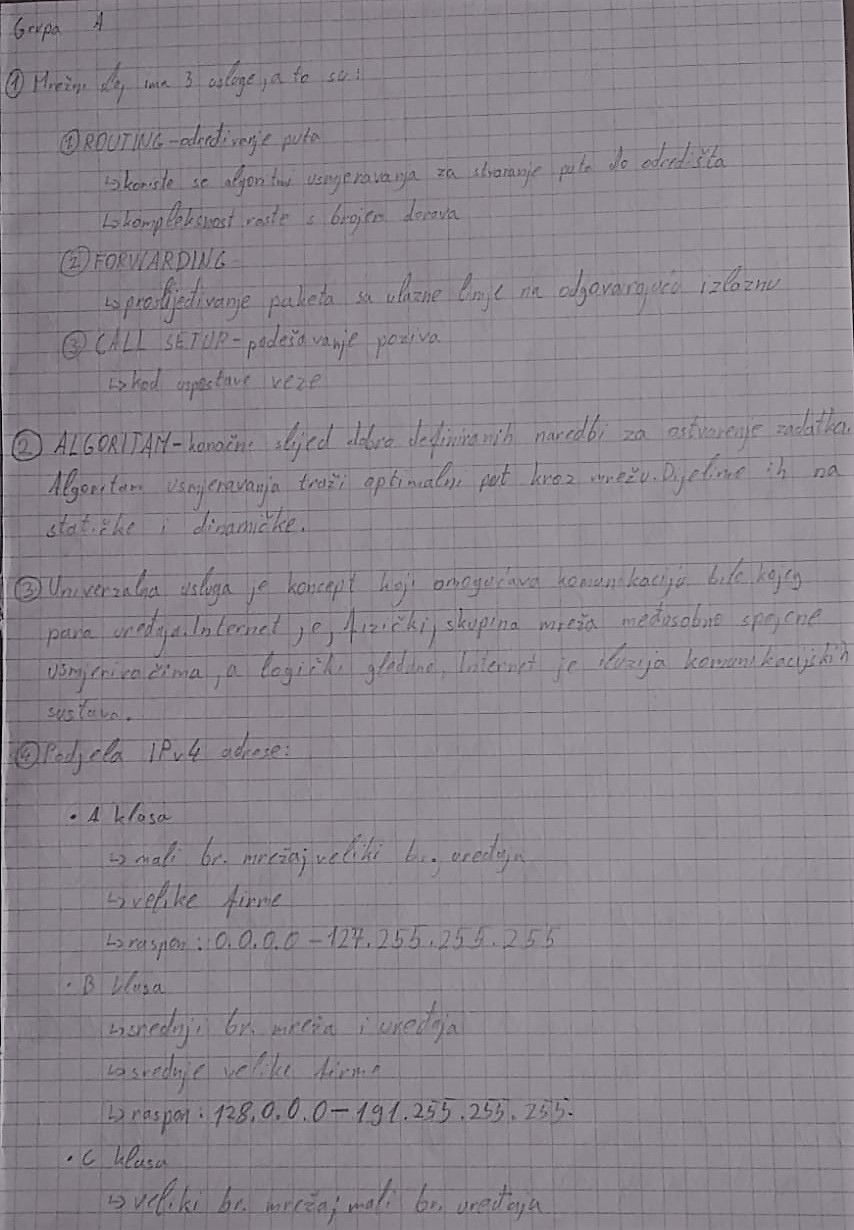 Grupa A
① Mrežni sloj ima 3 usluge, a to su:
① ROUTING - određivanje puta
↳ koriste se algoritmi usmjeravanja za stvaranje puta do odredišta
↳ kompleksnost raste s brojem
② FORWARDING
↳ prosljeđivanje paketa sa ulazne linije na odgovarajuću izlaznu
③ CALL SETUP - podešavanje poziva
↳ kod uspostave veze
② ALGORITAM - konačni slijed dobro definiranih naredbi za ostvarenje zadatka.
Algoritam usmjeravanja traži optimalni put kroz mrežu. Dijelimo ih na
statičke i dinamičke.
③ Univerzalna usluga je koncept koji omogućava komunikaciju bilo kojeg
para uređaja. Internet je, fizički, skupina mreža međusobno spojene
usmjerivačima, a logički gledano, Internet je iluzija komunikacijskih
sustava.
④ Podjela IPv4 adrese:
• A klasa
↳ mali br. mreža; veliki br. uređaja
↳ velike firme
↳ raspon: 0.0.0.0 - 127.255.255.255
• B klasa
↳ srednji br. mreža i uređaja
↳ srednje velike firme
↳ raspon: 128.0.0.0 - 191.255.255.255.
• C klasa
↳ veliki br. mreža; mali br. uređaja